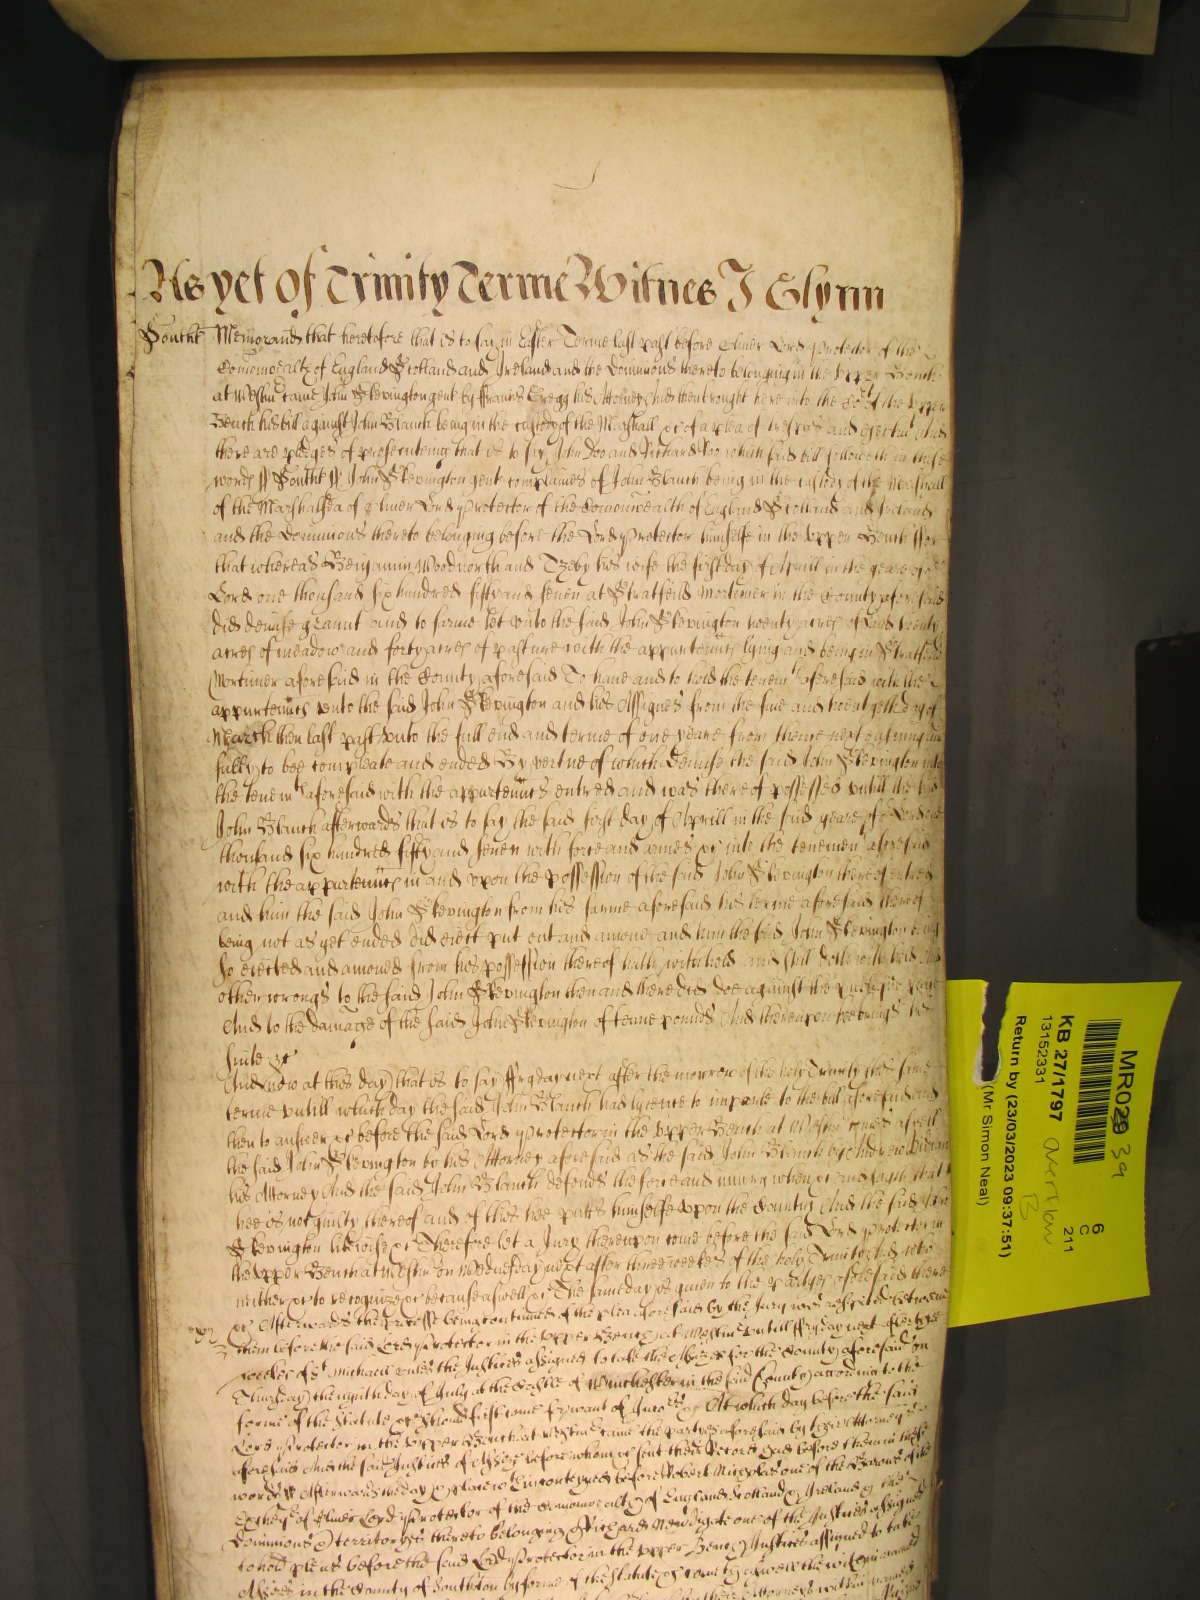 As yet of Trinity Terme Witnes J Glynn
Southt Memorand that heretofore that is to say in Easter Terme last past before Oliver Lord Protector of the
Comonwealth of England Scotland and Ireland and the Dominions thereto belonging in the Upper Bench
at Westm came John Skevington gent by Francis Gregg his Attorney And then brought here into the Court of the Upper
Bench his bill against John Blanch being in the custody of the Marshall &c of a plea of trespas and ejectm And
there are pledges of prosecuteing that is to say John Doo and Richard Roo which said bill followeth in these
words ss Southt ss John Skevington gent complaines of John Blanch being in the custody of the Marshall
of the Marshalsea of Oliver Lord Protector of the Comonwealth of England Scotland and Ireland
and the Dominions thereto belonging before the Lord Protector himselfe in the Upper Bench ffor
that whereas Benjamin Woodnorth and his wife the first day of Aprill in the yeare of o
Lord one thousand six hundred fifty and seuen at Stratfeild Mortimer in the County aforesaid
did demise graunt and to farme let vnto the said John Skevington twenty acres of Land twenty
acres of meadow and forty acres of pasture with the appurtenncs lying and being in Stratfeild
Mortimer aforesaid in the County aforesaid To haue and to hold the tenemts aforesaid with the
appurtenncs vnto the said John Skevington and his Assignes from the fiue and twentyeth day of
March then last past vnto the full end and terme of one yeare from thence next ensuing and
fully to bee compleate and ended By vertue of which demise the said John Skevington into
the tenemts aforesaid with the appurtenncs entred and was thereof possessed vntill the said
John Blanch afterwards that is to say the said first day of Aprill in the said yeare of o Lord one
thousand six hundred fifty and seuen with force and armes &c into the tenemen aforesaid
with the appurtenncs in and vpon the possession of the said John Skevington thereof entred
and him the said John Skevington from his farme aforesaid his terme aforesaid thereof
being not as yet ended did eiect put out and amoue and him the said John Skevington being
so eiected and amoued from his possession thereof hath withheld and still doth withhold And
other wrongs to the said John Skevington then and there did doe against the publique peace
And to the damage of the said John Skevington of tenne pounds And thereupon hee brings his
suite &c
And now at this day that is to say ffryday next after the morrow of the holy Trinity this same
terme vntill which day the said John Blanch had lycence to imparle to the bill aforesaid and
then to answer &c before the said Lord Protector in the Upper Bench at Westm comes aswell
the said John Skevington by his Attorney aforesaid as the said John Blanch by Andrew
his Attorney And the said John Blanch defends the force and iniury when &c and sayth that
hee is not guilty thereof and of this hee putts himselfe vpon the Country And the said John
Skevington likewise &c Therefore let a Jury thereupon come before the said Lord Protector in
the Upper Bench at Westm on Wednesday next after three weekes of the holy Trinity And who
neither &c to recognize &c because aswell &c The same day is giuen to the partyes aforesaid there
&c Afterwards the processe being continued of the plea aforesaid by the Jury was respited betweene
them before the said Lord Protector in the Upper Bench at Westm vntill ffryday next after three
weekes of St Michaell vnles the Justices assigned to take the Assizes for the County aforesaid on
Thursday the day of July at the Castle of Winchester in the said County according to the
forme of the Statute &c should first come for want of Jurors &c At which day before the said
Lord Protector in the Upper Bench at Westm came the partyes aforesaid by their Attorneys
aforesaid And the said Justices of Assize before whom &c sent their Record had before them in these
words ss Afterwards the day & place w in conteyned before Robert Nicholas one of the Barons of the
Excheqr of Oliver Lord Protector of the Comonwealth of England Scotland & Ireland & the
Dominions & territoryes thereto belonging & Richard Newdigate one of the Justices assigned
to hold pleas before the said Lord Protector in the Upper Bench Justices assigned to take
Assizes in the County of Southton by forme of the Statute &c came aswell the within named
MR029 39
6
C
211
KB 27/1797
13152331
Overflow
B
Return by (23/03/2023 09:37:51)
(Mr Simon Neal)